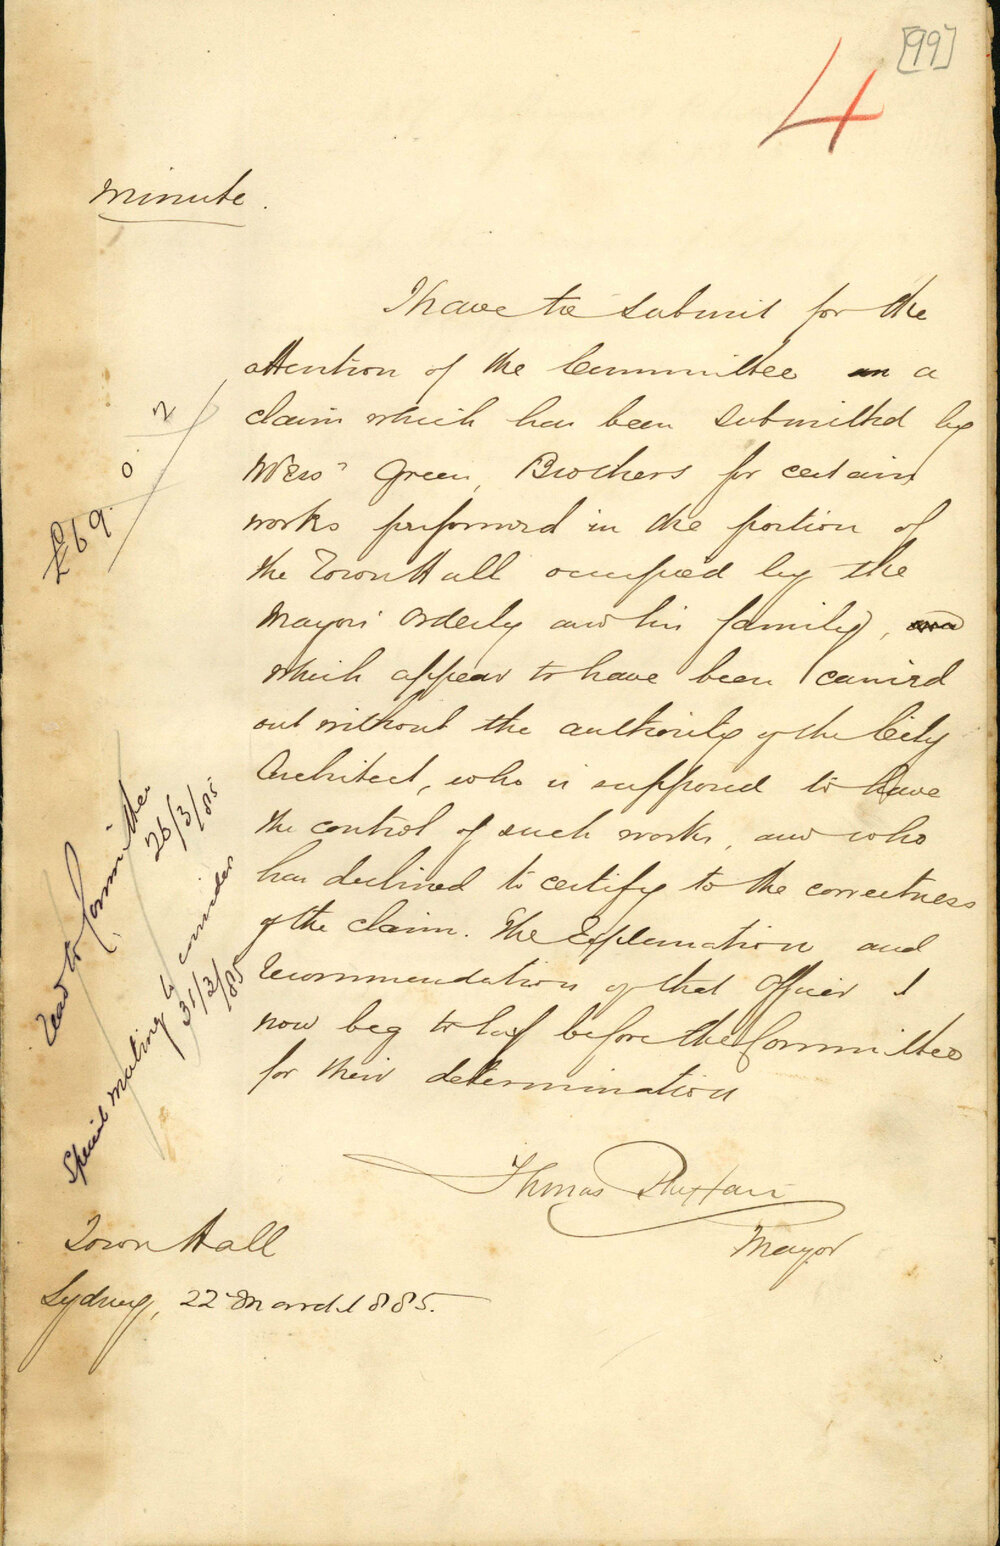 [99]
4
Minute.
I have to submit for the
attention of the Committee a
claim which has been submitted by
Messrs Green, Brothers for certain
works preformed in the portion of
the Town Hall occupied by the
Mayors Orderly and his family,
which appear to have been carried
out without the authority of the City
Architect, who is supposed to have
the control of such works, and who
has declined to certify to the correctness
of the claim. The Explanation and
Recommendation of that Officer I
now beg to lay before the Committee
for their determination
Thomas
Mayor
Town Hall
Sydney, 22 March 1885.
£69. 0. 2
Read to Committee
26/3/85
Special Meeting to consider
31/3/85